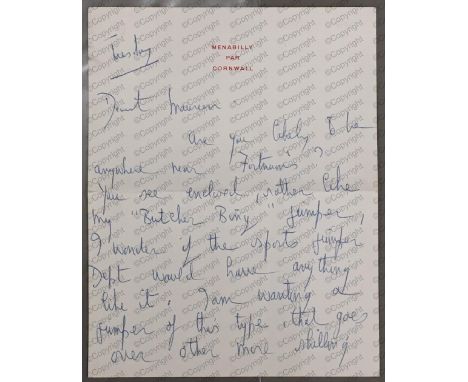 Tuesday
MENABILLY
PAR
CORNWALL
Dearest Maureen.
Are you likely to be
anywhere near Fortnum's?
You see enclosed, rather like
my "Butcher Boy" jumper,
I wonder if the sports jumper
Dept would have anything
like it. I am wanting a
jumper of this type, that goes
over other more